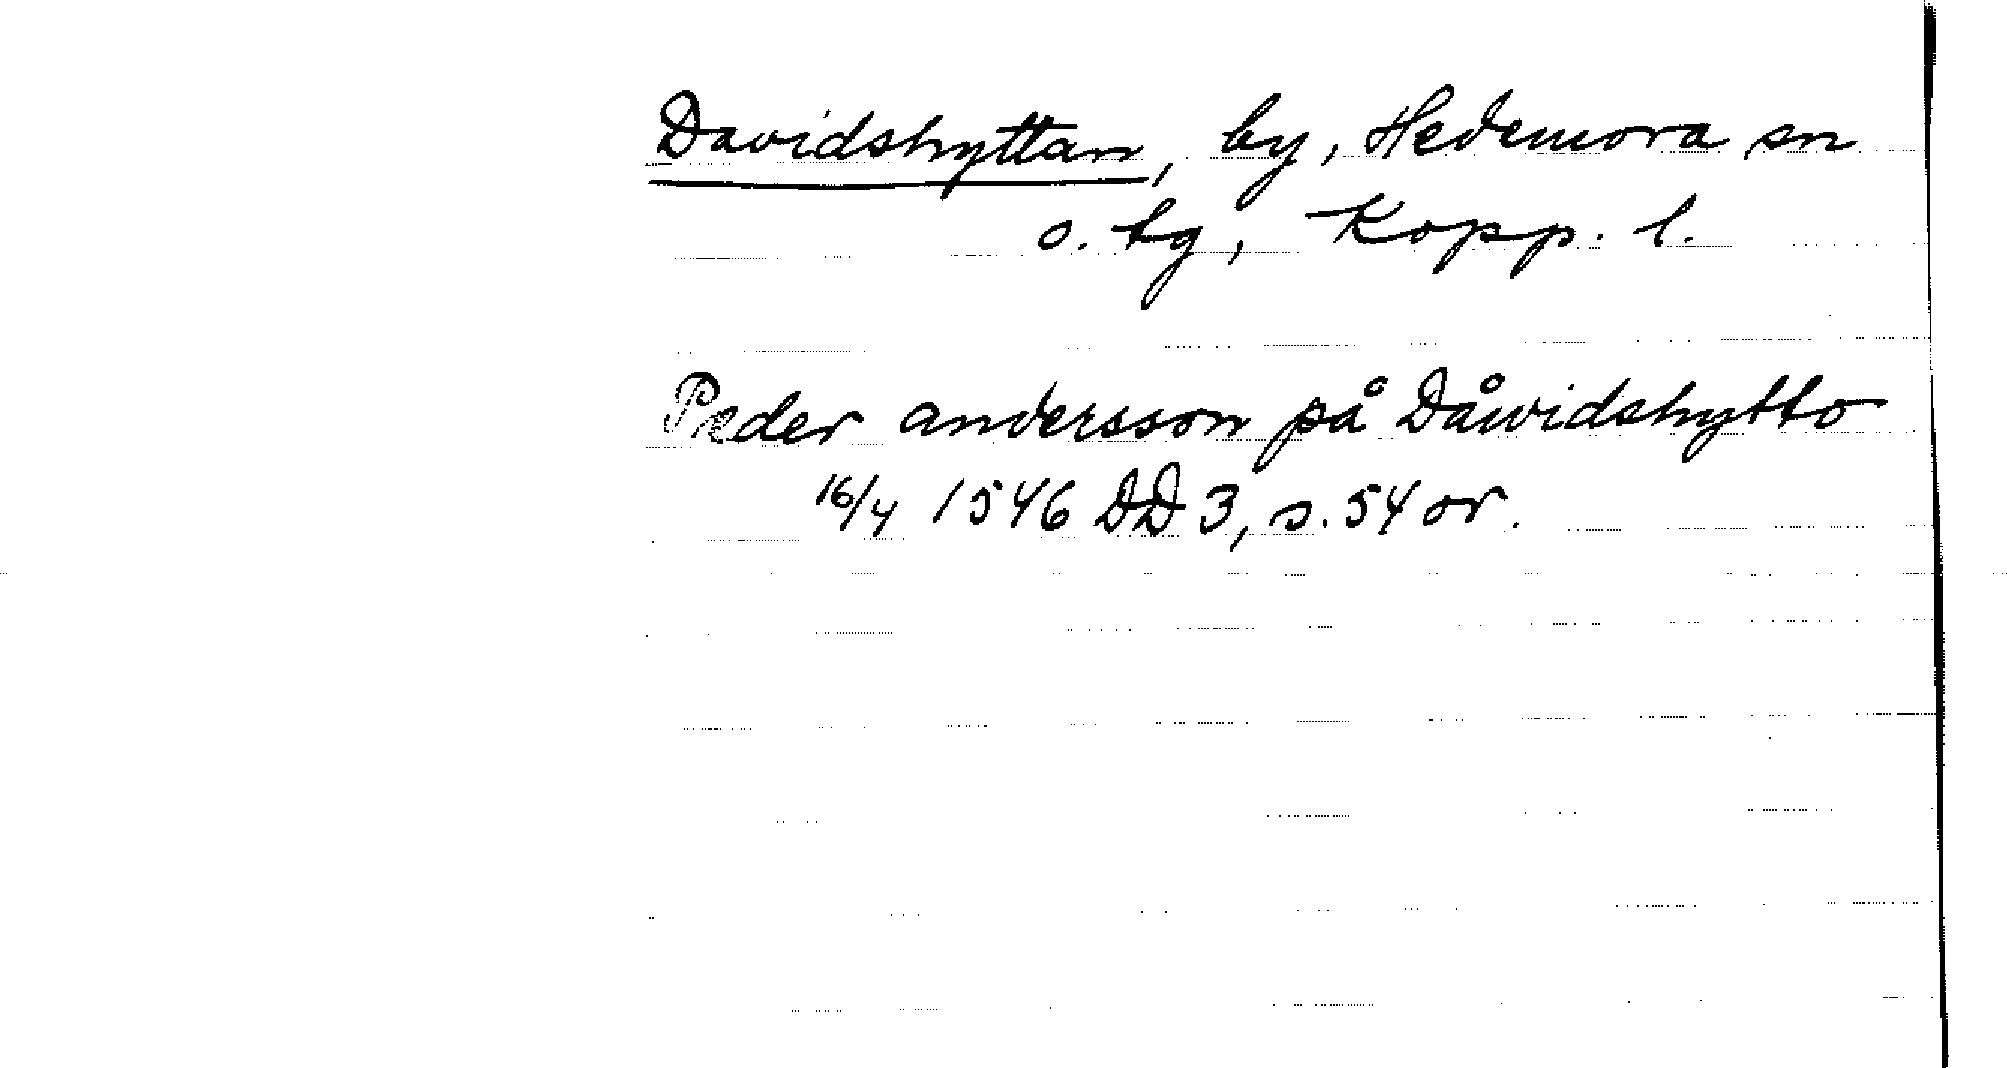 Davidshyttan, by, Hedemora sn
o. tg, Kopp. l.
Peder andersson på Dåwidshytto
16/4 1546 DD 3, s. 54 or.